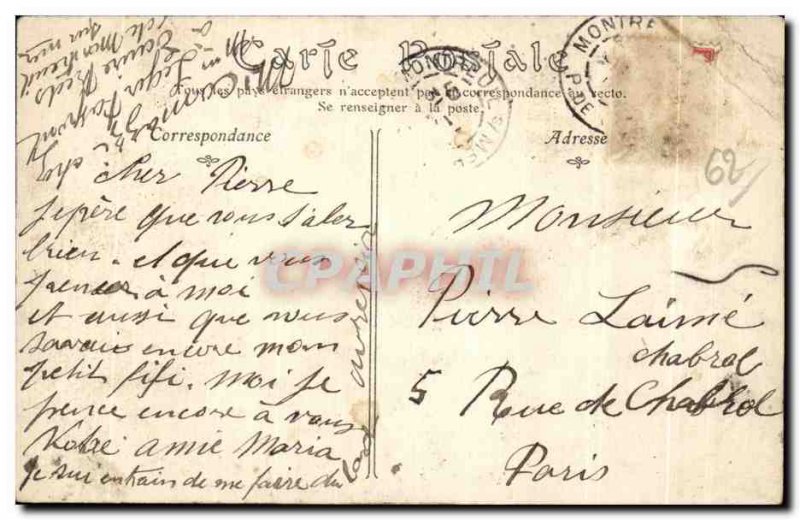 Carte Postale
Tous les pays étrangers n'acceptent pas la correspondance au recto.
Se renseigner à la poste.
Correspondance
Adresse
MONTRE
62
cher Pierre
jepère que vous s'aler
bien. et que vous
pence à moi
et aussi que vous
savais encore mon
petit fifi. moi je
pence encore à vous
Votre amie Maria
je sui entrain de me faire du
lad
au revoir
Ecrivie
de Montreuil
sur mer
Monsieur
Pierre Laimé
chabrol
5 Rue de Chabrol
Paris
CPAPHIL